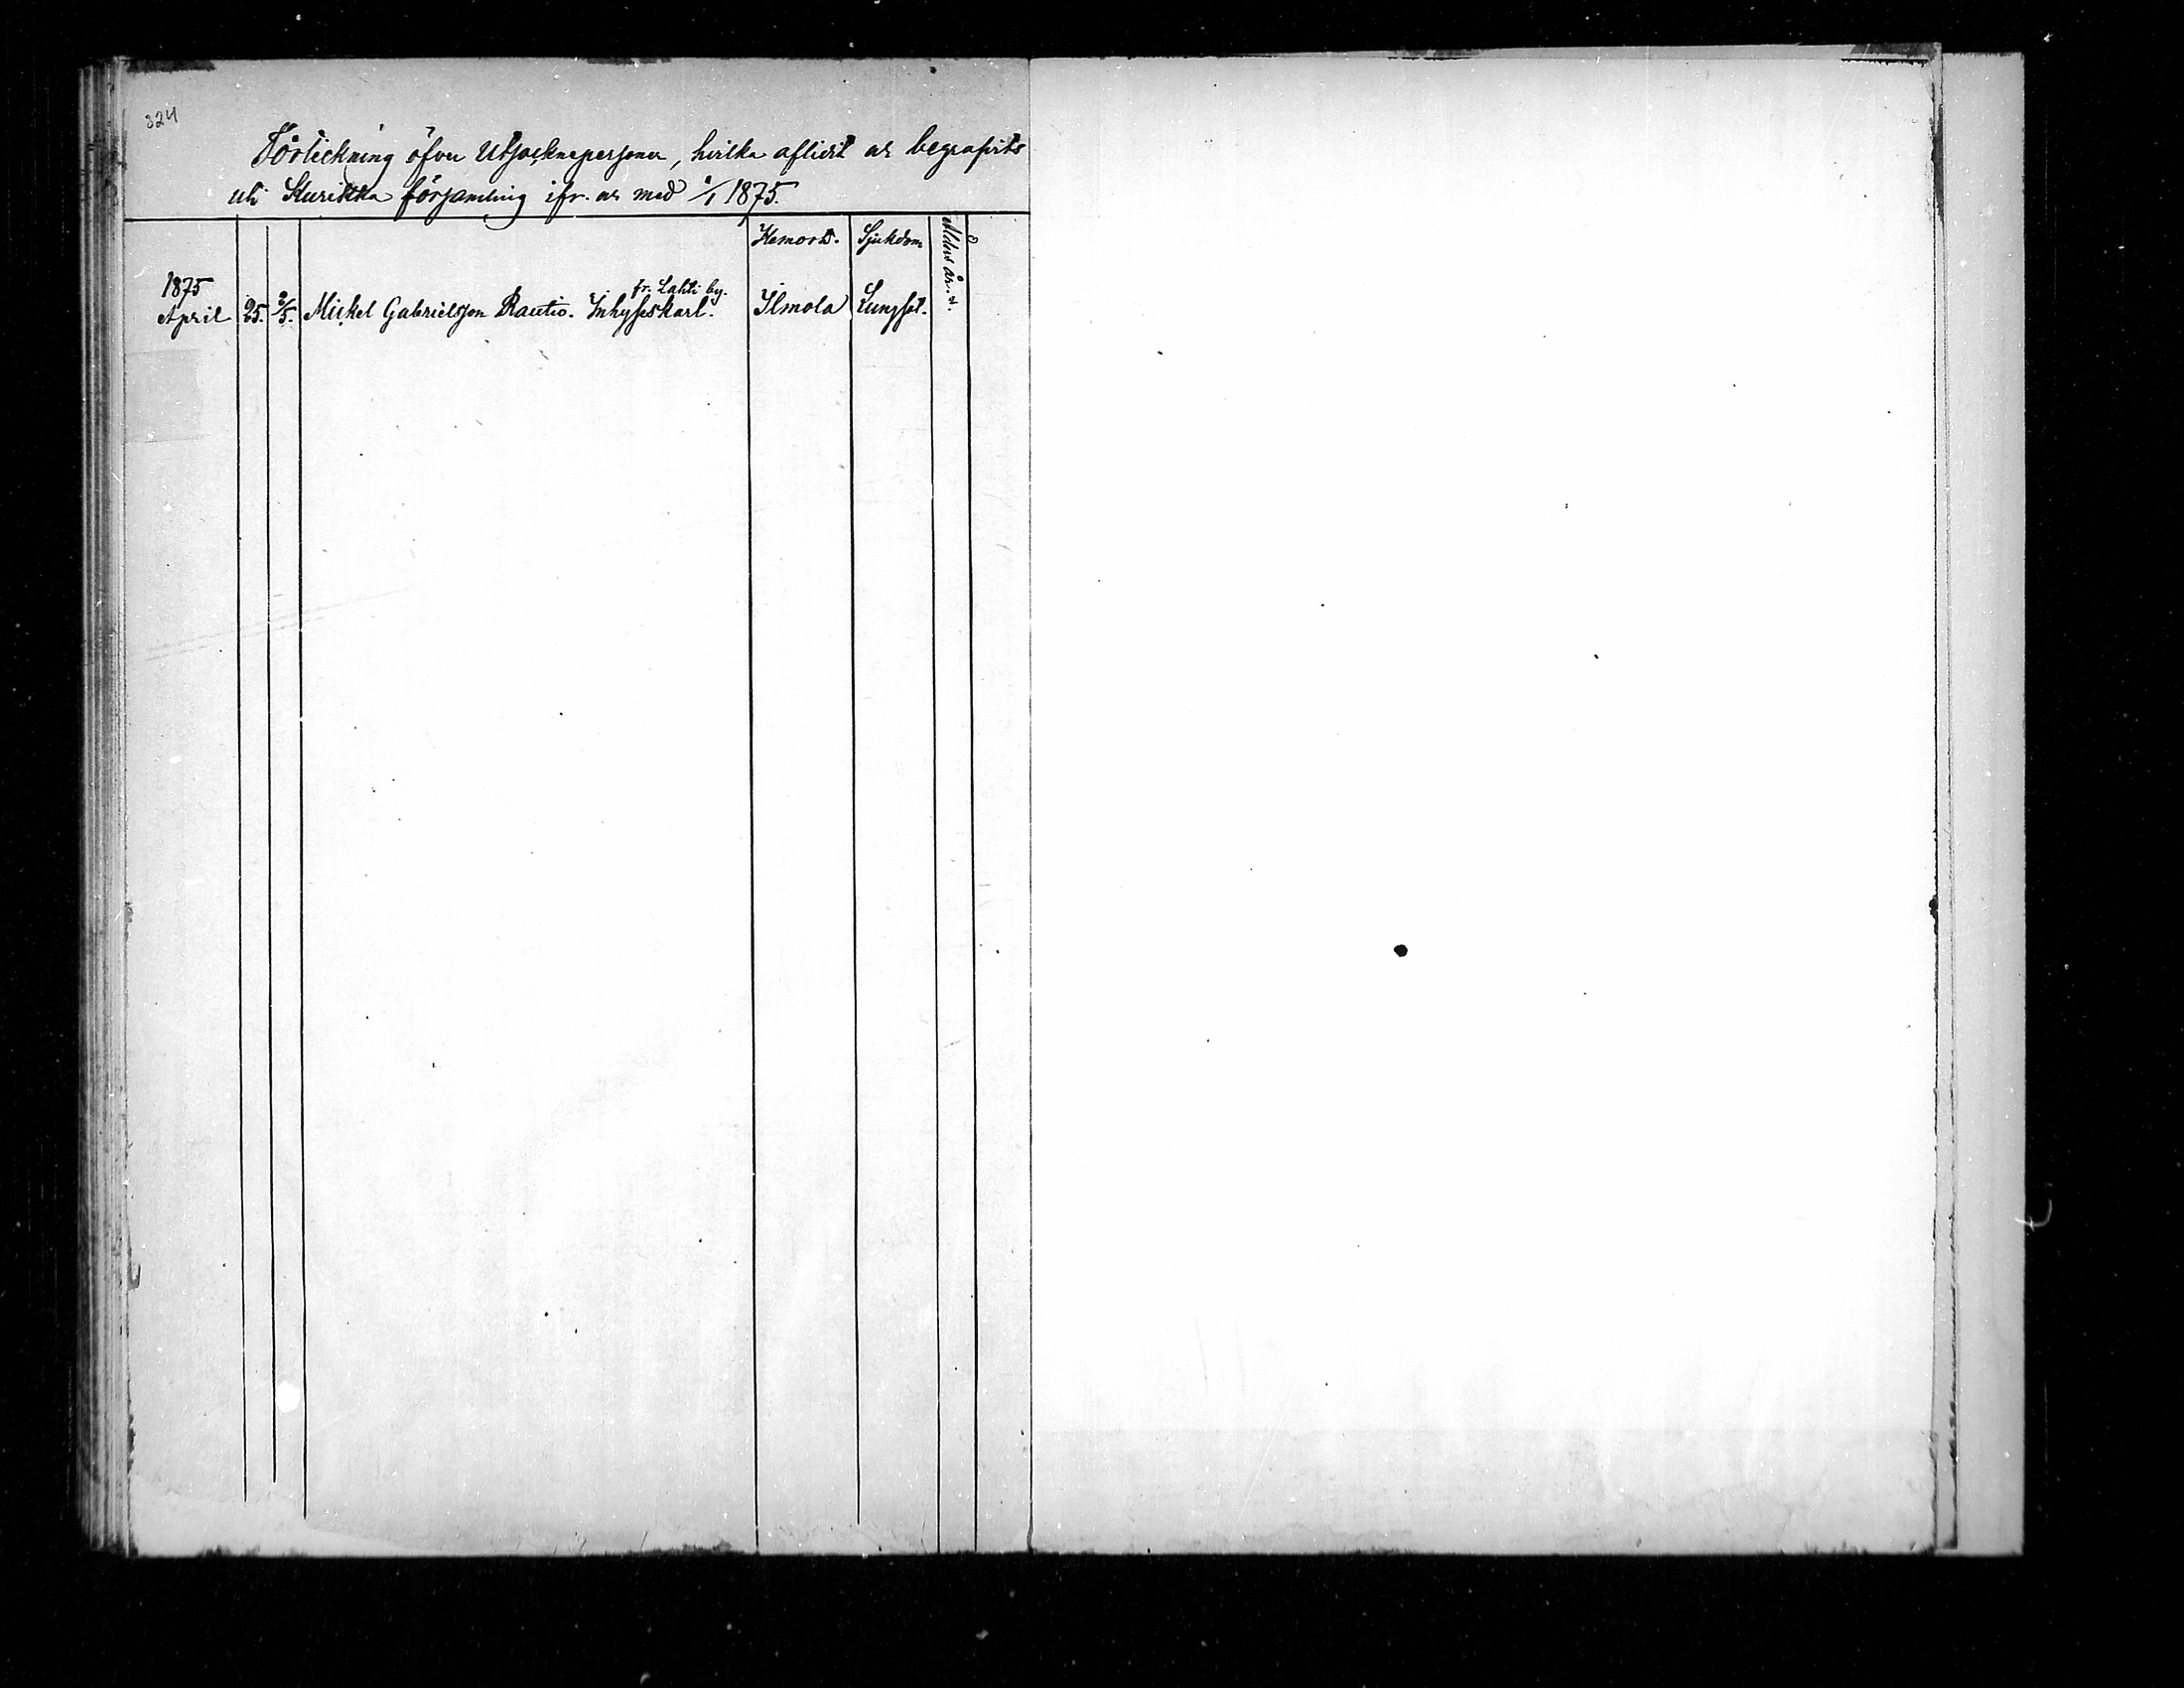 324
Förteckning öfver Utsocknepersoner, hvilka aflidit och begrafvits
uti Kurikka församling ifr. och med 1/1 1875.
Hemort. Sjukdom Ålders år.
1875 fr. Lahti by.
April 25. 2/5. Mickel Gabrielsson Rautio. Inhyseskarl. Ilmola Lungsot.